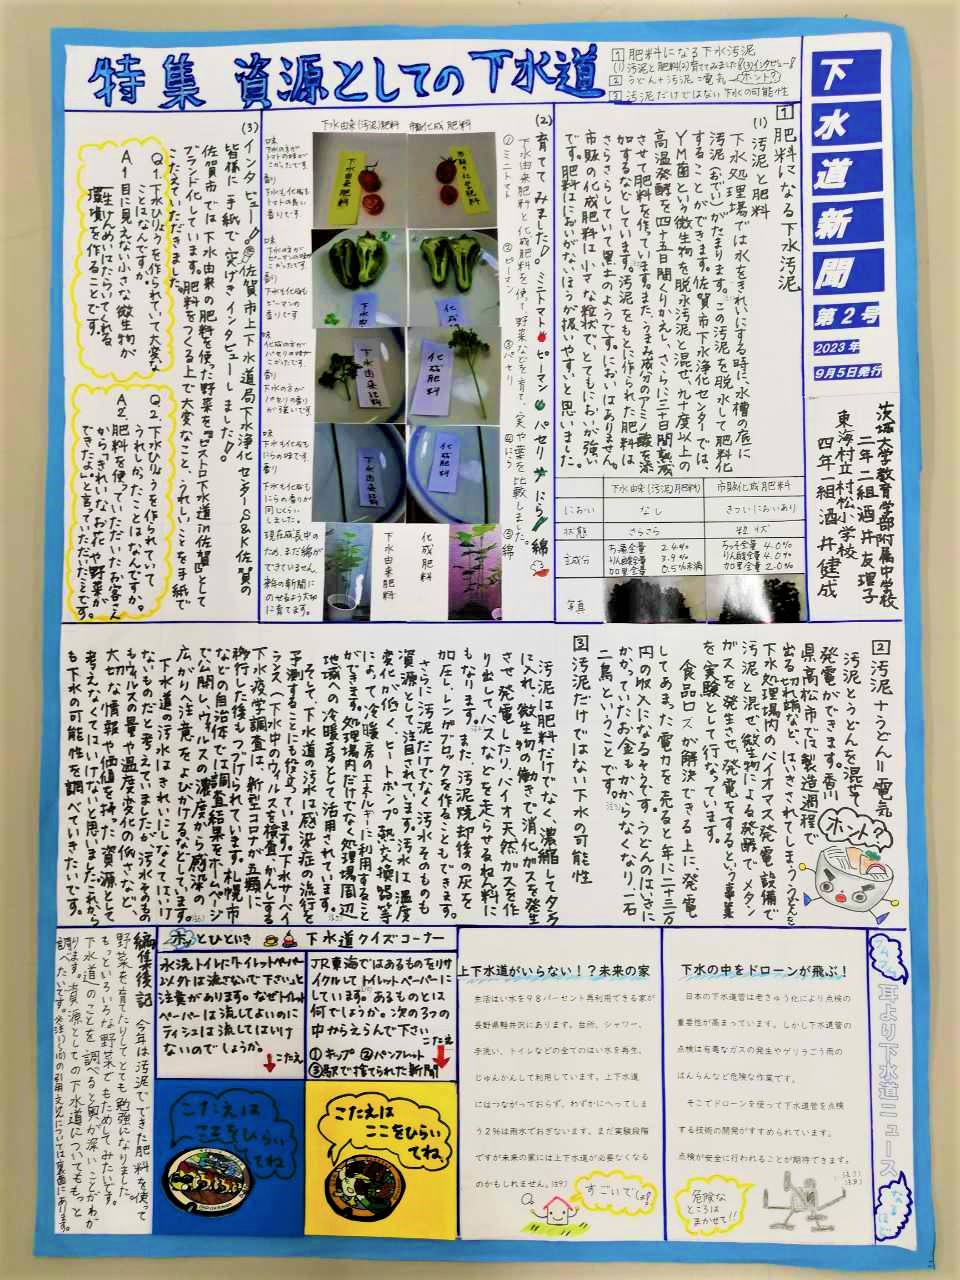 特集 資源としての下水道
1 肥料になる下水汚泥
(1) 汚泥と肥料(2)育ててみました!(3)インタビュー!
2 うどん+汚泥=電気 ホント?
3 汚泥だけではない下水の可能性
下水道新聞
第2号
2023年
9月5日発行
茨城大学教育学部附属中学校
二年二組 酒井友理子
東海村立村松小学校
四年一組 酒井健成
1 肥料になる下水汚泥
(1) 汚泥と肥料
下水処理場では水をきれいにする時に、水槽の底に
汚泥(おでい)がたまります。この汚泥を脱水して肥料化
することができます。佐賀市下水浄化センターでは、
YM菌という微生物を脱水汚泥と混ぜ、九十度以上の
高温発酵を四十五日間くりかえし、さらに三十日間熟成
させて肥料を作っています。また、うまみ成分のアミノ酸を添
加するなどしています。汚泥をもとに作られた肥料は
さらさらしていて黒土のようです。においはありません。
市販の化成肥料は小さな粒状で、とてもにおいが強い
です。肥料はにおいがないほうが扱いやすいと思いました。
下水由来(汚泥)肥料
市販化成肥料
におい
なし
きついにおいあり
状態
さらさら
粒状
主成分
ちっ素全量 2.4%
りん酸全量 3.9%
加里全量 0.5%未満
ちっそ全量 4.0%
りん酸全量 4.0%
加里全量 2.0%
写真
(2) 育ててみました!! ミニトマト ピーマン パセリ にら 綿
下水由来肥料と化成肥料を使って、野菜などを育て、実や葉を比較しました。
①ミニトマト ②ピーマン ③パセリ ④にら ⑤綿
下水由来(汚泥)肥料 市販化成肥料
味
下水の方が
トマトの味が
こかったです
香り
下水も化成も
トマトの良い
香りです
味
下水の方が
ピーマンの味が
こかったです
香り
下水も化成も
ピーマンの
香りです
味
化成の方が
パセリの味が
こいです
香り
下水の方が
パセリの香り
が強いです
味
下水も化成も
にらの味です
香り
下水も化成も
にらの香りが
同じくらい
しました。
現在成長中の
ため、まだ綿が
できていません
来年の新聞に
のせるよう大切
に育てます。
下水由来肥料
化成肥料
下水由来肥料
化成肥料
下水由来肥料
化成肥料
下水由来肥料
化成肥料
(3) インタビュー!! 佐賀市上下水道局下水浄化センターS&K佐賀の
皆様に手紙で突げきインタビューしました!!
佐賀市では下水由来の肥料を使った野菜を『ビストロ下水道in佐賀』として
ブランド化しています。肥料をつくる上で大変なこと、うれしいことを手紙で
こたえていただきました。
Q1.下水ひりょうを作られていて大変な
ことはなんですか。
A1.目に見えない小さな微生物が
一生けんめいはたらいてくれる
環境を作ることです。
Q2.下水ひりょうを作られていて、
うれしかったことはなんですか。
A2.肥料を使っていただいたお客さん
から「きれいなお花や野菜が
できたよ。」と言っていただいたことです。
2 汚泥+うどん=電気
汚泥とうどんを混ぜて
発電ができます。香川
県高松市では製造過程で
出る切れ端など、はいきされてしまううどんを
下水処理場内のバイオマス発電設備で
汚泥と混ぜ、微生物による発酵でメタン
ガスを発生させ、発電をするという事業
を実験として行なっています。
食品ロスが解決できる上に発電
してあまった電力を売ると年に二十三万
円の収入になるそうです。うどんのはいきに
かかっていたお金もかからなくなり、一石
二鳥ということです。
ホント?
3 汚泥だけではない下水の可能性
汚泥は肥料だけでなく、濃縮してタンク
に入れ、微生物の働きで消化ガスを発生
させ、発電したり、バイオ天然ガスを作
り出してバスなどを走らせるねん料に
もなります。また、汚泥焼却後の灰を
加圧し、レンガブロックを作ることもできます。
さらに汚泥だけでなく汚水そのものも
資源として注目されています。汚水は温度
変化が低く、ヒートポンプ、熱交換器等
によって、冷暖房のエネルギーに利用すること
ができます。処理場内だけでなく処理場周辺
地域への冷暖房として活用されています。
そして、下水道の汚水は感染症の流行を
予測することにも役立っています。下水サーベイ
ランス(下水中のウィルスを検査・かんしする
下水疫学調査)は、新型コロナが五類に
移行した後もつづけられています。札幌市
などの自治体では調査結果をホームページ
で公開し、ウィルスの濃度から感染の
広がりへ注意をよびかけるなどしています。
下水道の汚水はきれいにしなくてはいけ
ないものだと考えていましたが、汚水そのもの
もウィルスの量や温度変化の低さなど、
大切な情報や価値を持った資源として
考えなくてはいけないと思いました。これから
も下水の可能性を調べていきたいです。
耳より下水道ニュース
下水の中をドローンが飛ぶ!
日本の下水道管は老きゅう化により点検の
重要性が高まっています。しかし下水道管の
点検は有毒なガスの発生やゲリラごう雨の
はんらんなど危険な作業です。
そこでドローンを使って下水道管を点検
する技術の開発がすすめられています。
点検が安全に行われることが期待できます。
危険な
ところは
まかせて!!
上下水道がいらない!?未来の家
生活はい水を98パーセント再利用できる家が
長野県軽井沢にあります。台所、シャワー、
手洗い、トイレなどの全てのはい水を再生、
じゅんかんして利用しています。上下水道
にはつながっておらず、わずかにへってしま
う2%は雨水でおぎないます。まだ実験段階
ですが未来の家には上下水道が必要なくなる
のかもしれません。
すごいでしょ
ホッとひといき 下水道クイズコーナー
JR東海ではあるものをリサ
イクルしてトイレットペーパーに
しています。あるものとは
何でしょうか。次の3つの
中からえらんで下さい
①キップ ②パンフレット
③駅で捨てられた新聞
こたえ
水洗トイレに「トイレットペーパー
以外は流さないで下さい」と
注意があります。なぜトイレット
ペーパーは流してよいのに
ティシュは流してはいけ
ないのでしょうか。
こたえ
こたえは
ここをひらい
てね
こたえは
ここをひらい
てね
編集後記 今年は汚泥でできた肥料を使って
野菜を育てたりしてとても勉強になりました。
もっといろいろな野菜でもためしてみたいです。
下水道のことを調べると奥が深いことがわか
ります。資源としての下水道についてももっと
調べたいです。